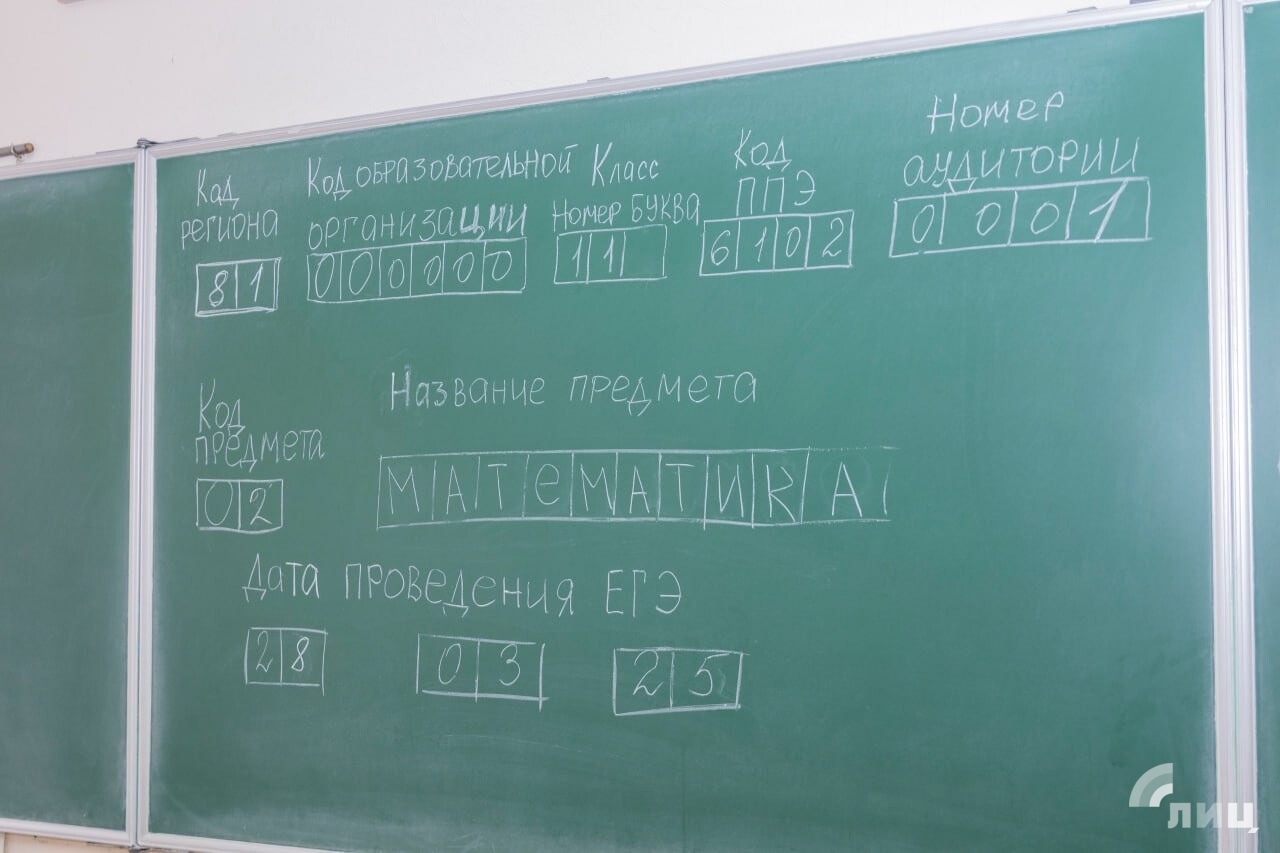 Код региона
81
Код образовательной
организации
000000
Класс
Номер БУКВА
11
Код
ППЭ
6102
Номер
аудитории
0001
Код
предмета
02
Название предмета
МАТЕМАТИКА
Дата проведения ЕГЭ
28 03 25
лиц